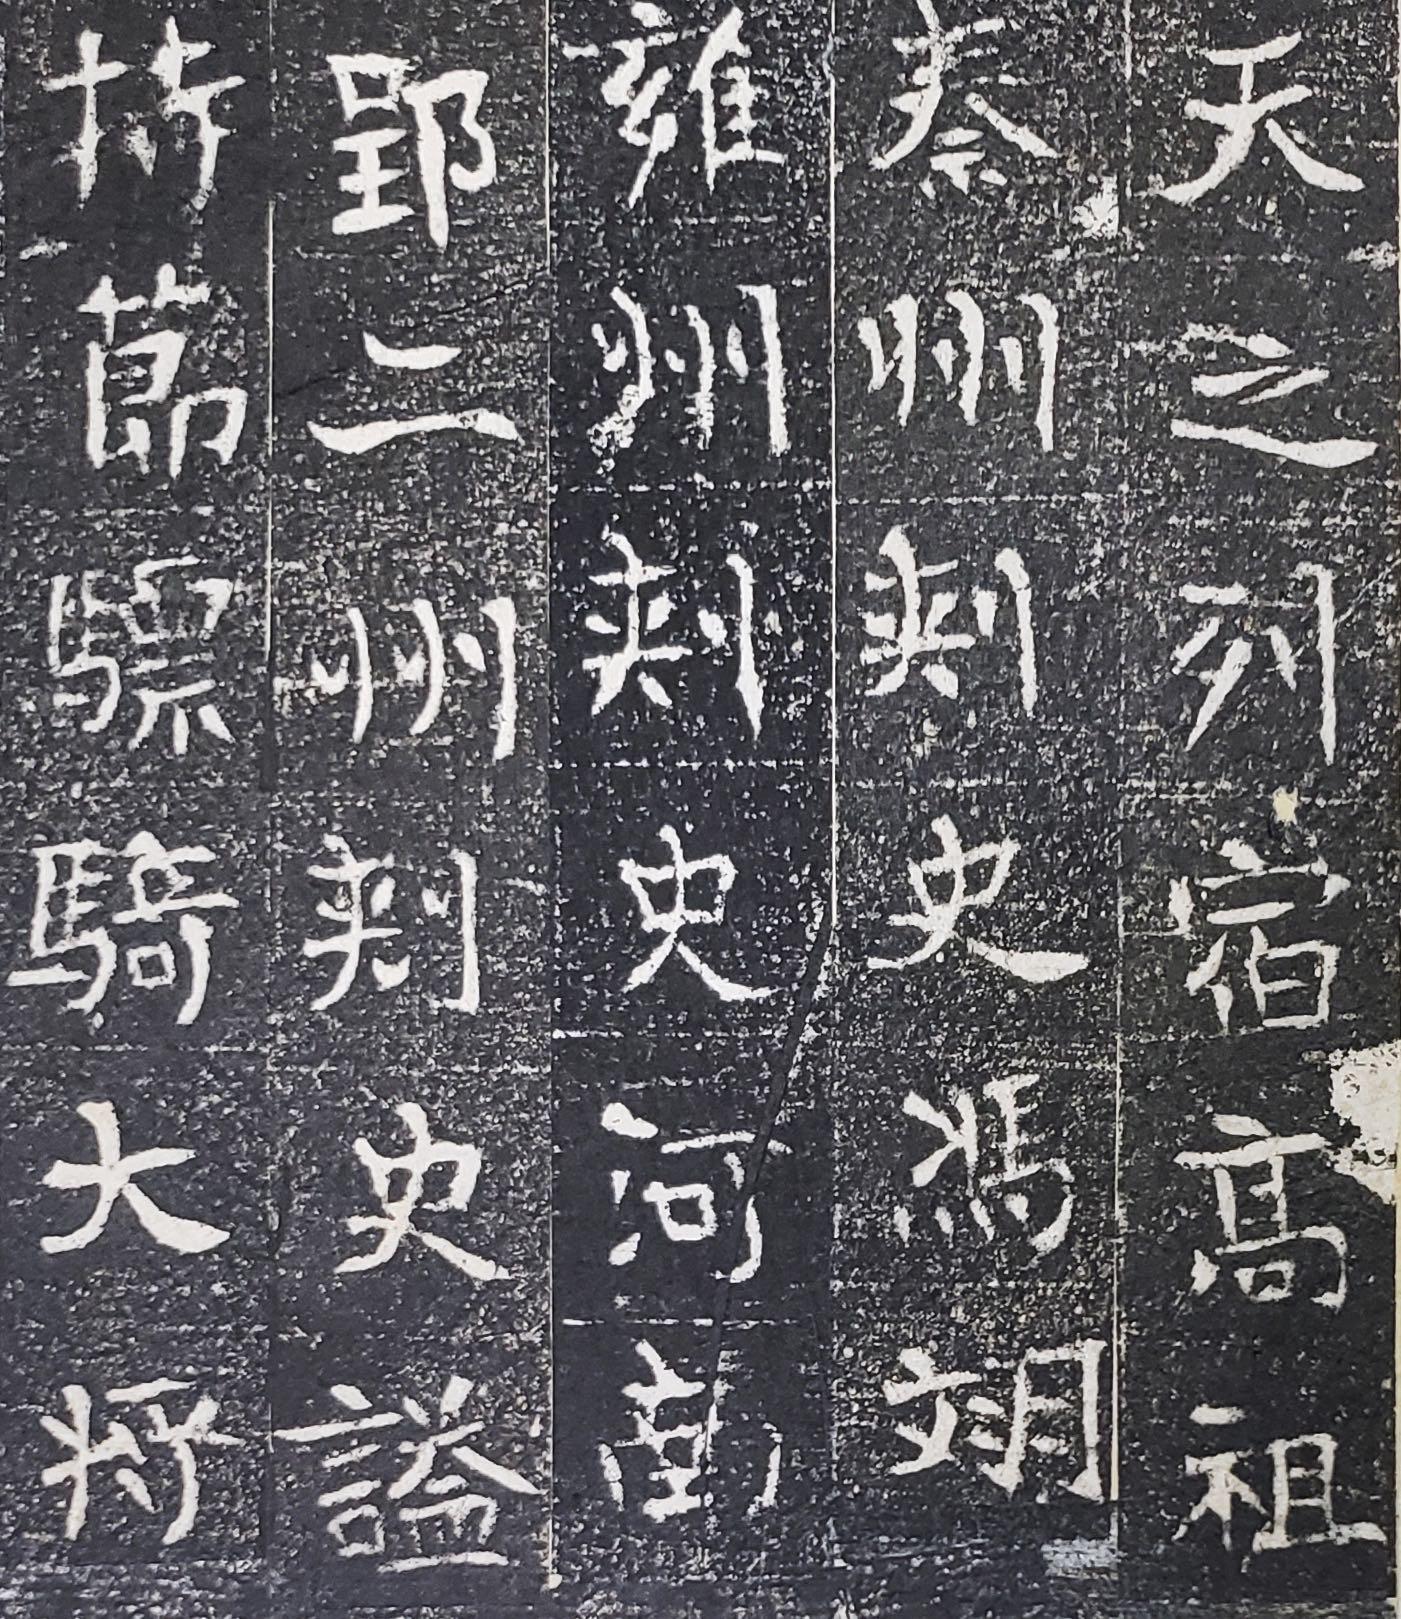 天之列宿高祖
秦州刺史馮翊
雍州刺史河南
郢二州刺史諡
持節驃騎大將